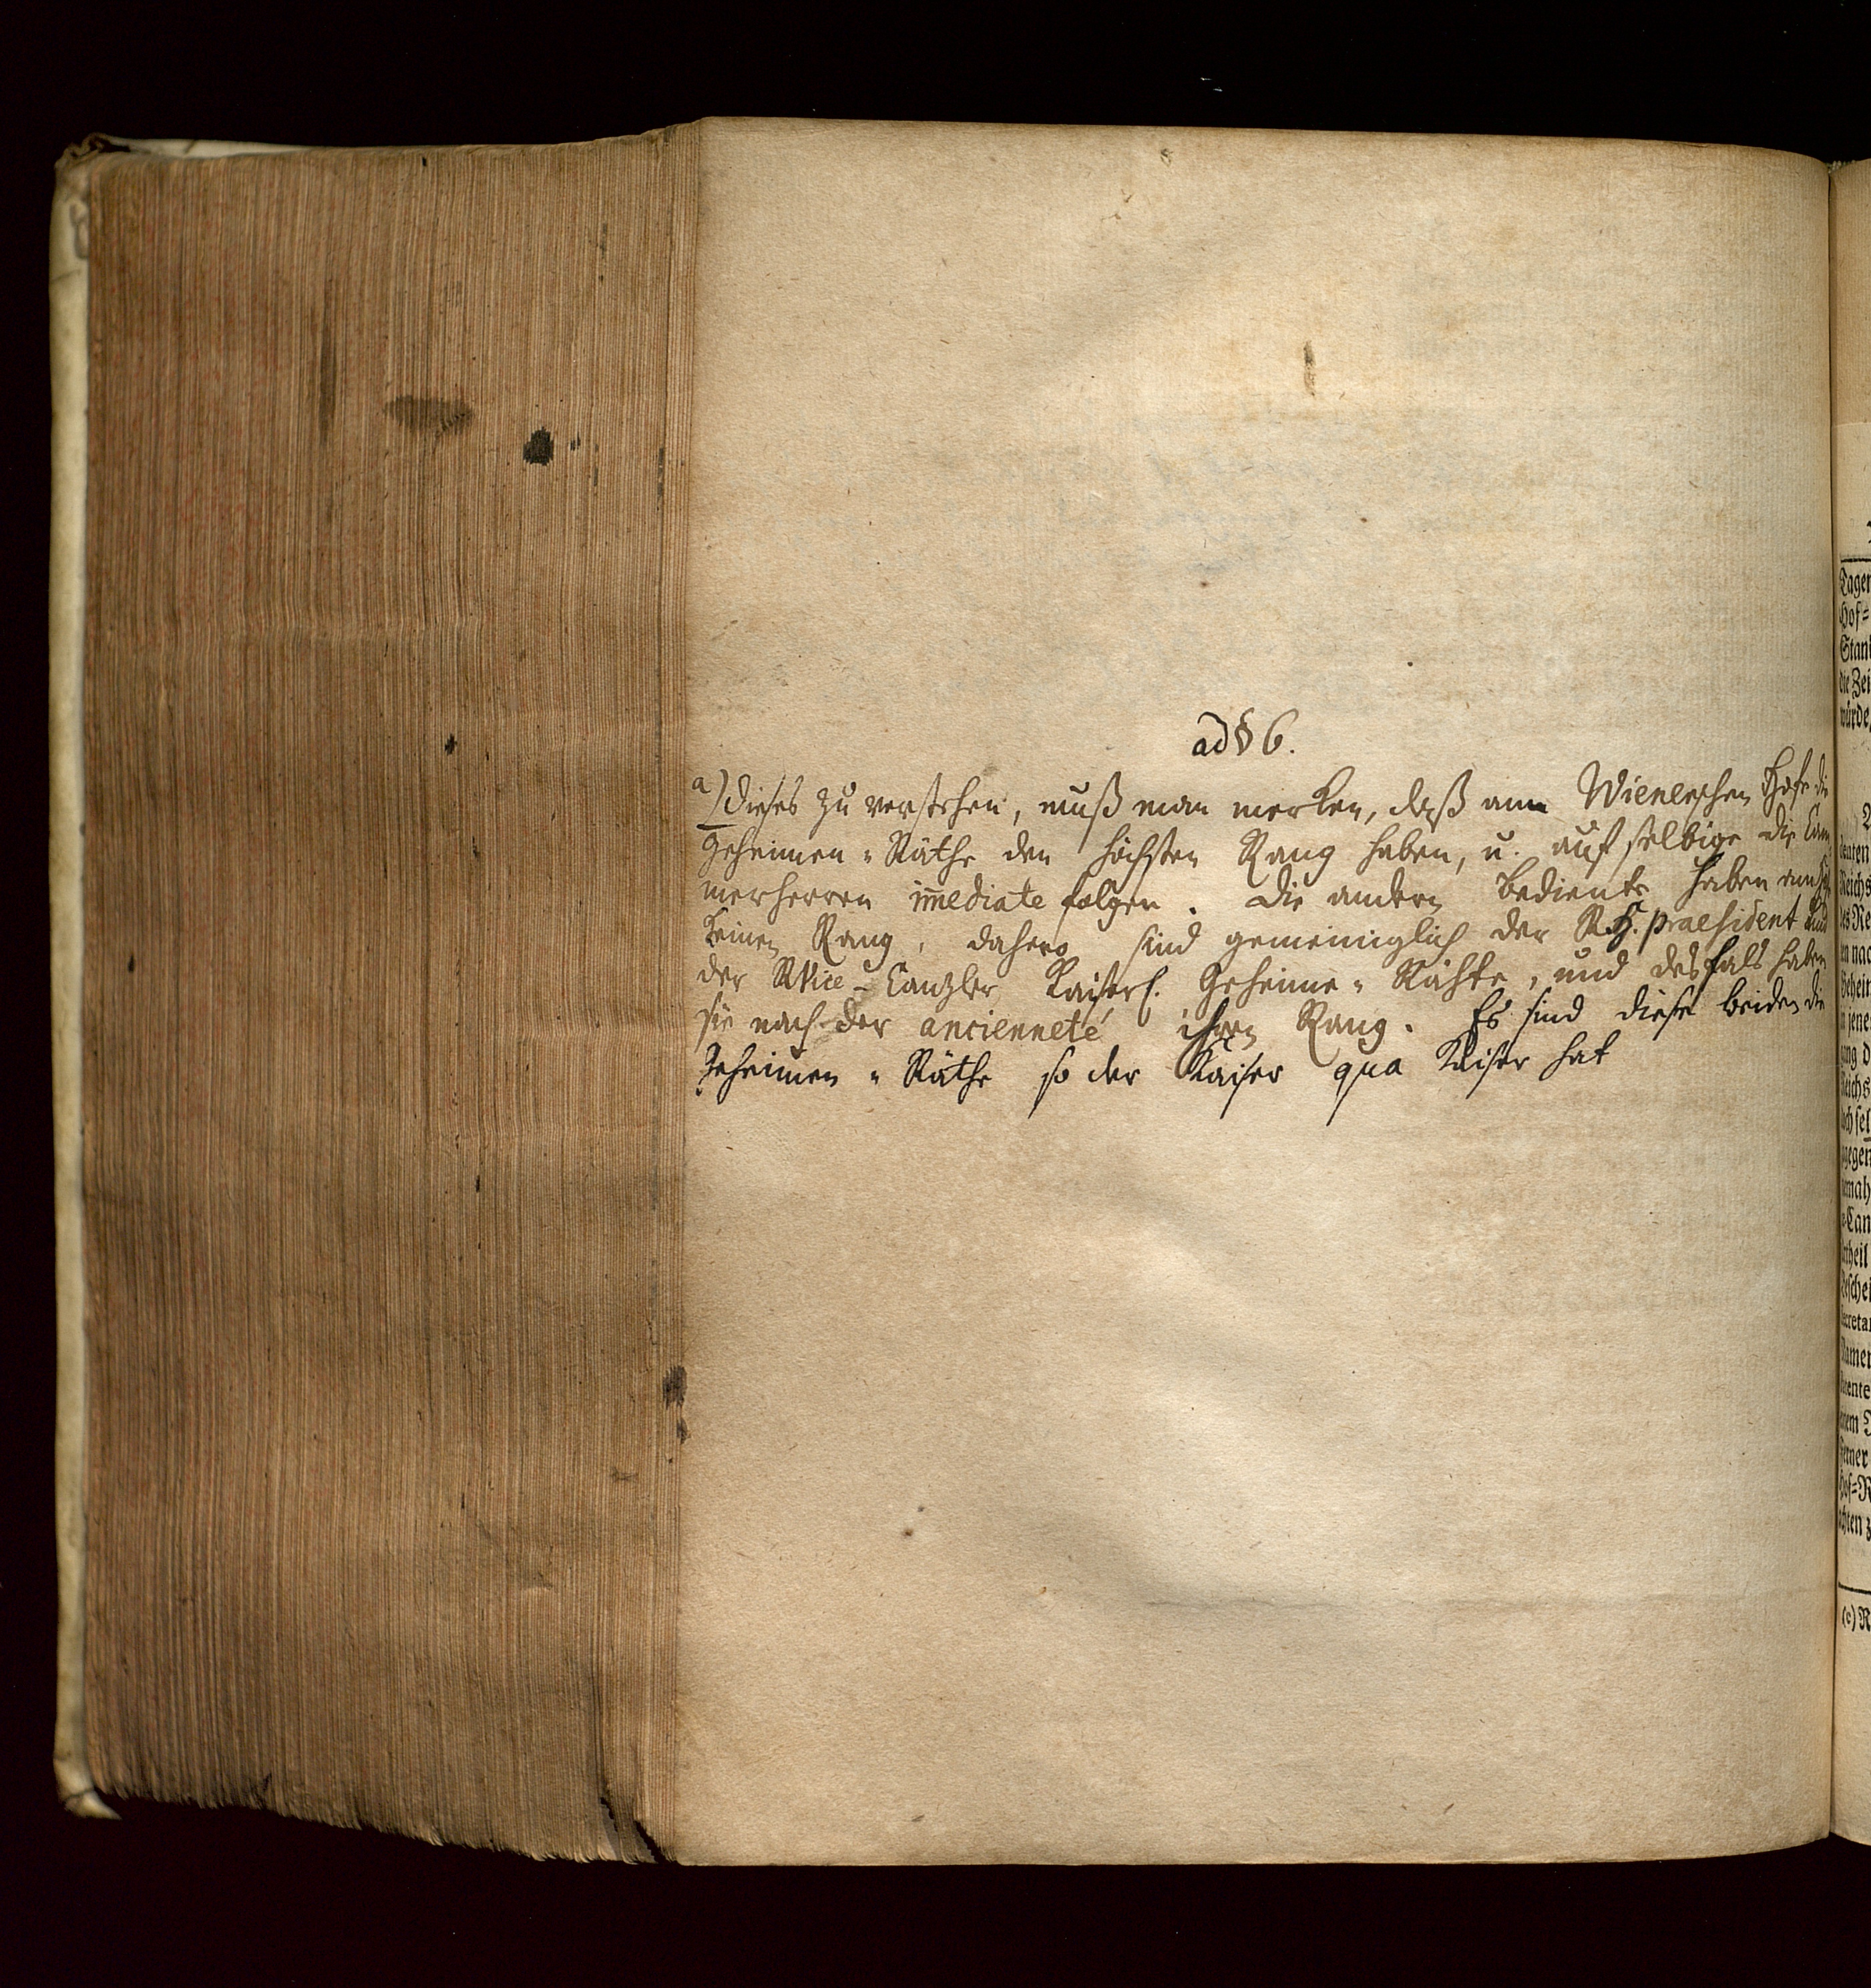 ad § 6.
a) Dieses zu verstehen, muß man merken, daß am Wienerschen Hofe die
Geheimen-Räthe den höchsten Rang haben, u. auf selbige die Cam-
merherren immediate folgen. Die andern Bediente haben
keinen Rang, dahero sind gemeiniglich der R.H. praesident und
der R Vice-Canzler Kaiserl. Geheime-Räthe, und desfals haben
sie nach der ancienneté ihren Rang. Es sind diese beiden die
Geheimen-Räthe so der Kaiser qua Kaiser hat
Tagen
Hof-
Stan
die Zei
würde
Reichs
Gehei
jene
Reichs
sel
gegen
mah
Can
theil
Name
ente
nem
ferner
Hof-R
hten z
(c) R